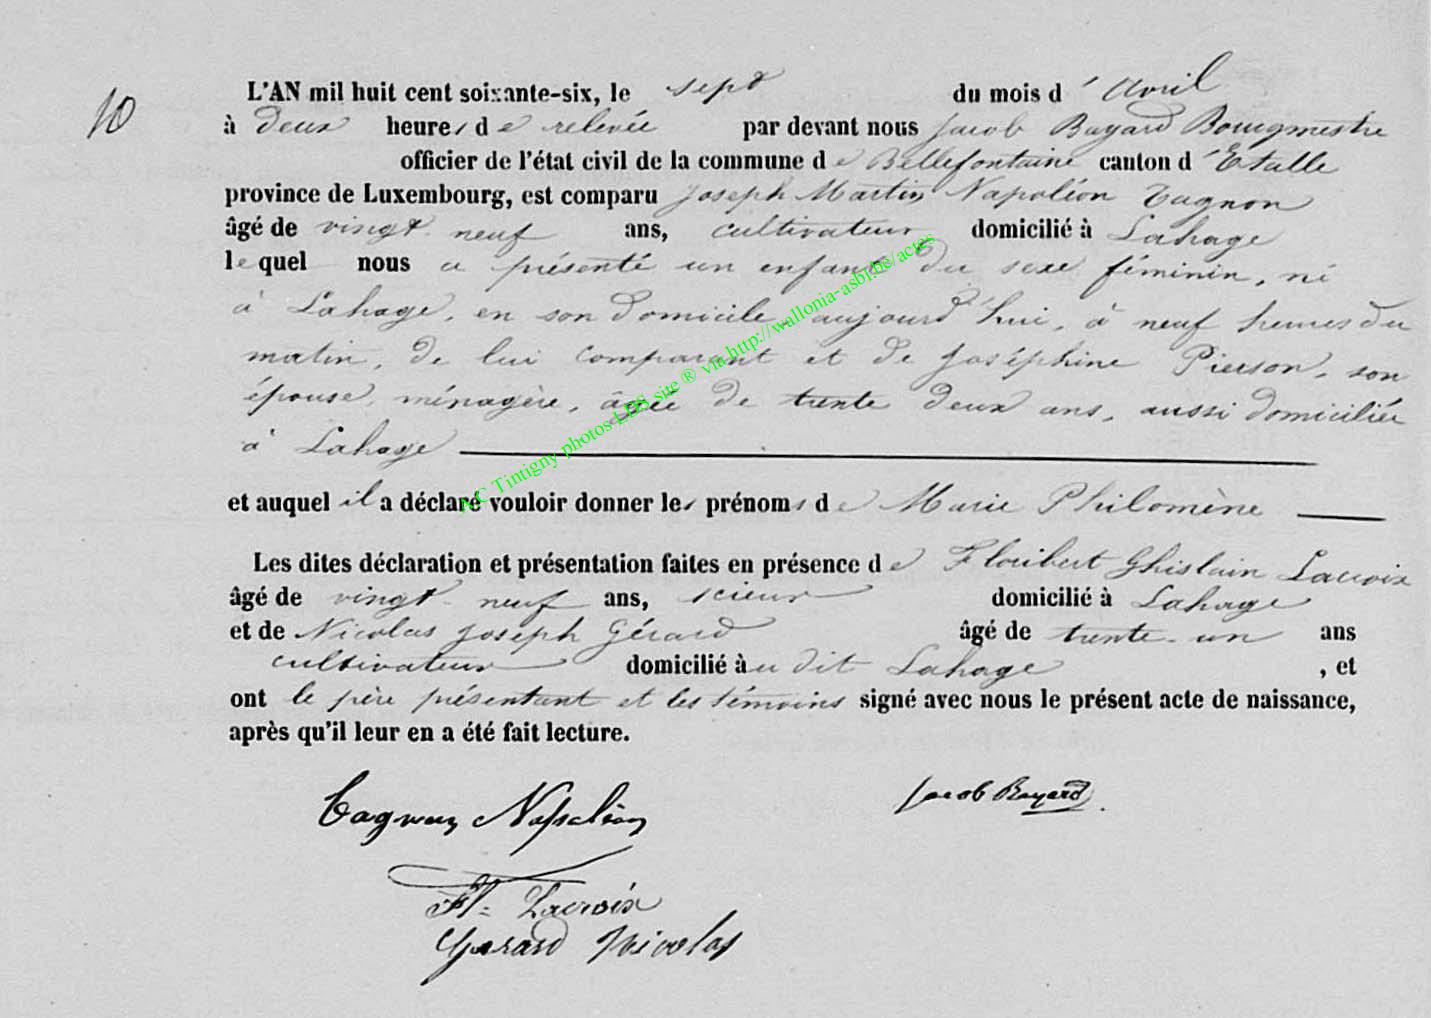 10
L'AN mil huit cent soixante-six, le sept du mois d'Avril
à deux heures de relevée par devant nous Jacob Bayard Bourgmestre
officier de l'état civil de la commune de Bellefontaine canton d'Etalle
province de Luxembourg, est comparu Joseph Martin Napoléon Tagnon
âgé de vingt-neuf ans, cultivateur domicilié à Lahage
lequel nous a présenté un enfant du sexe féminin, né
à Lahage, en son domicile, aujourd'hui, à neuf heures du
matin, de lui comparant et de Joséphine Pierson, son
épouse, ménagère, âgée de trente deux ans, aussi domiciliée
à Lahage
et auquel il a déclaré vouloir donner les prénoms de Marie Philomène
Les dites déclaration et présentation faites en présence de Floribert Ghislain Lacroix
âgé de vingt-neuf ans, scieur domicilié à Lahage
et de Nicolas Joseph Gérard âgé de trente-un ans
cultivateur domicilié au dit Lahage, et
ont le père présentant et les témoins signé avec nous le présent acte de naissance,
après qu'il leur en a été fait lecture.
Tagnon Napoléon
Jacob Bayard
Fl. Lacroix
Gerard Nicolas
A.C Tintigny photos LDS site ® via http://wallonia-asbl.be/actes